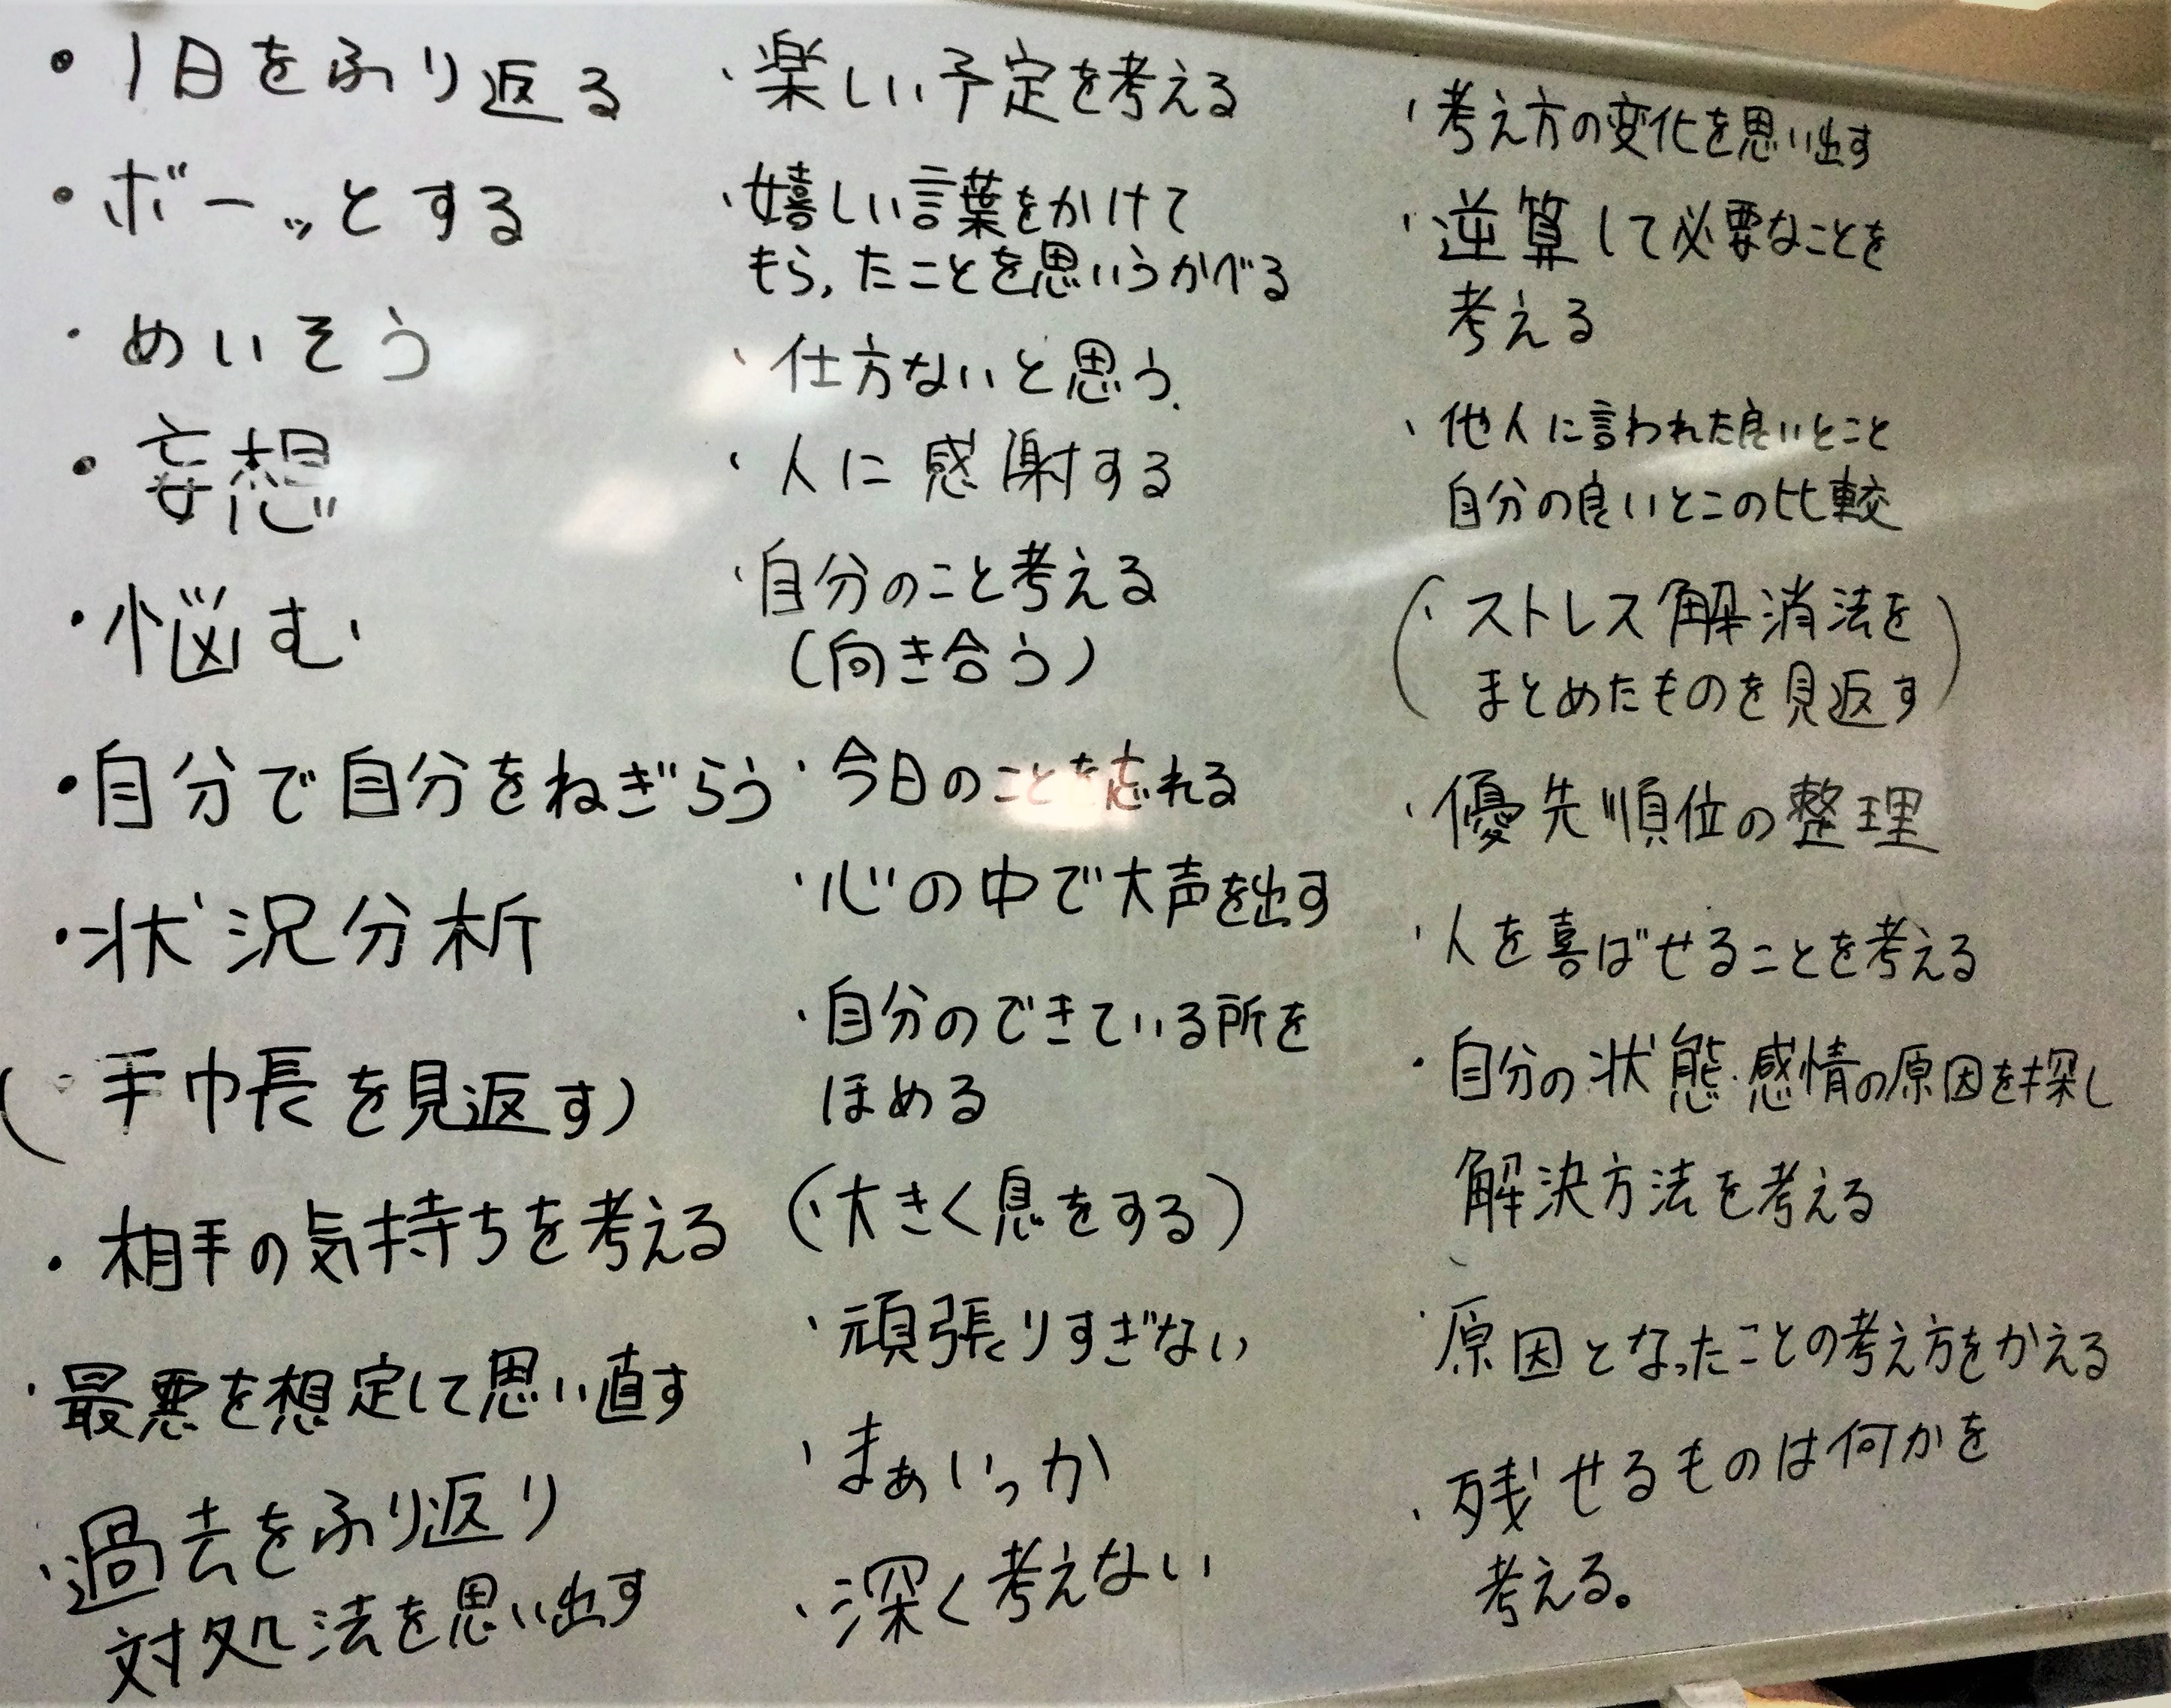 ・1日をふり返る
・ボーッとする
・めいそう
・妄想
・悩む
・自分で自分をねぎらう
・状況分析
(・手巾長を見返す)
・相手の気持ちを考える
・最悪を想定して思い直す
・過去をふり返り
対処法を思い出す
・楽しい予定を考える
・嬉しい言葉をかけて
もらったことを思いうかべる
・仕方ないと思う.
・人に感謝する
・自分のこと考える
(向き合う)
・今日のことを忘れる
・心の中で大声を出す
・自分のできている所を
ほめる
(・大きく息をする)
・頑張りすぎない
・まぁいっか
・深く考えない
・考え方の変化を思い出す
・逆算して必要なことを
考える
・他人に言われた良いとこと
自分の良いとこの比較
(・ストレス解消法を
まとめたものを見返す)
・優先順位の整理
・人を喜ばせることを考える
・自分の状態・感情の原因を探し
解決方法を考える
・原因となったことの考え方をかえる
・残せるものは何かを
考える。